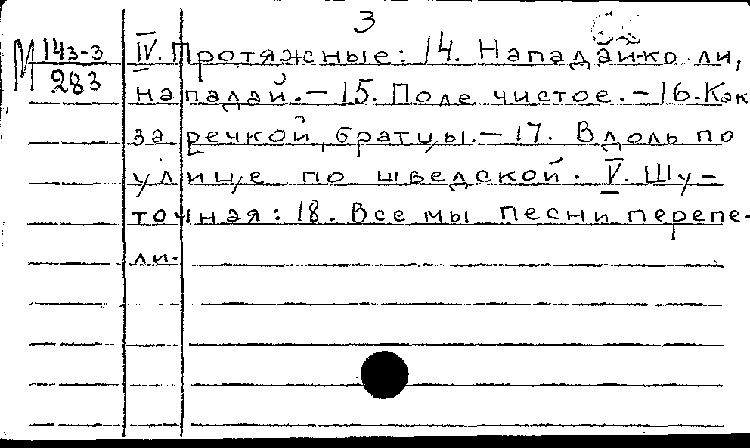 3
М 143-3
283
IV. Протяжные: 14. Нападай-ко ли,
нападай. — 15. Поле чистое. — 16. Как
за речкой, братцы. — 17. Вдоль по
улице по шведской. V. Шу-
точная: 18. Все мы песни перепе-
ли.